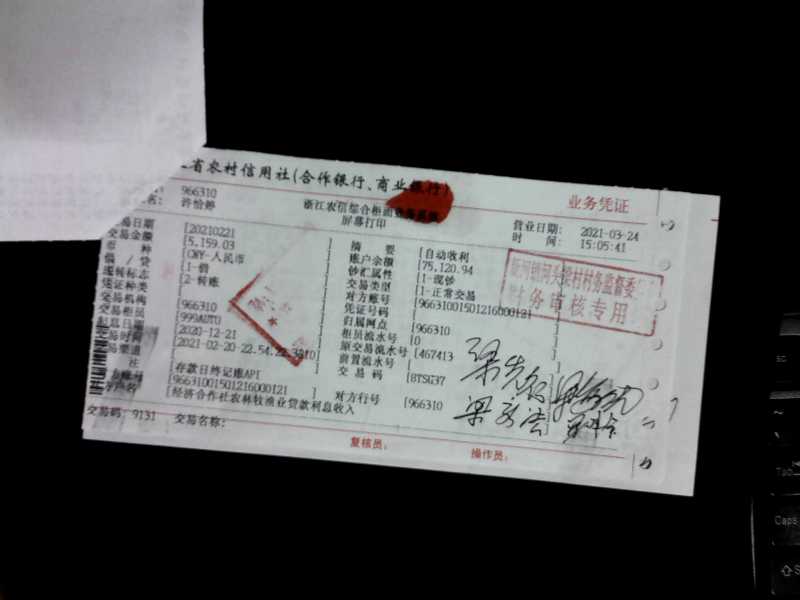 省农村信用社(合作银行、商业银行)
业务凭证
966310
名: 许怡婷
浙江农信综合柜面业务系统
屏幕打印
营业日期: 2021-03-24
时 间: 15:05:41
交易日期 [20210221
交易金额 [5,159.03
币 种 [CNY-人民币
借 / 贷 [1-借
现转标志 [2-转账
凭证种类
交易机构 [966310
交易柜员 [999AUTO
起息日期 [2020-12-21
交易时间 [2021-02-20-22.54.22
交易渠道
注 [存款日终记账API
账号 [966310015012160001​21]
户名 [经济合作社农林牧渔业贷款利息收入
摘 要 [自动收利
账户余额 [75,120.94
钞汇属性 [1-现钞
交易类型 [1-正常交易
对方账号 [96631001501216000121
凭证号码
归属网点 [966310
柜员流水号 [0
原交易流水号 [467413
前置流水号
交 易 码 [8TSG37
对方行号 [966310
村务监督委
财务审核专用
交易码: 9131 交易名称:
复核员: 操作员:
Caps